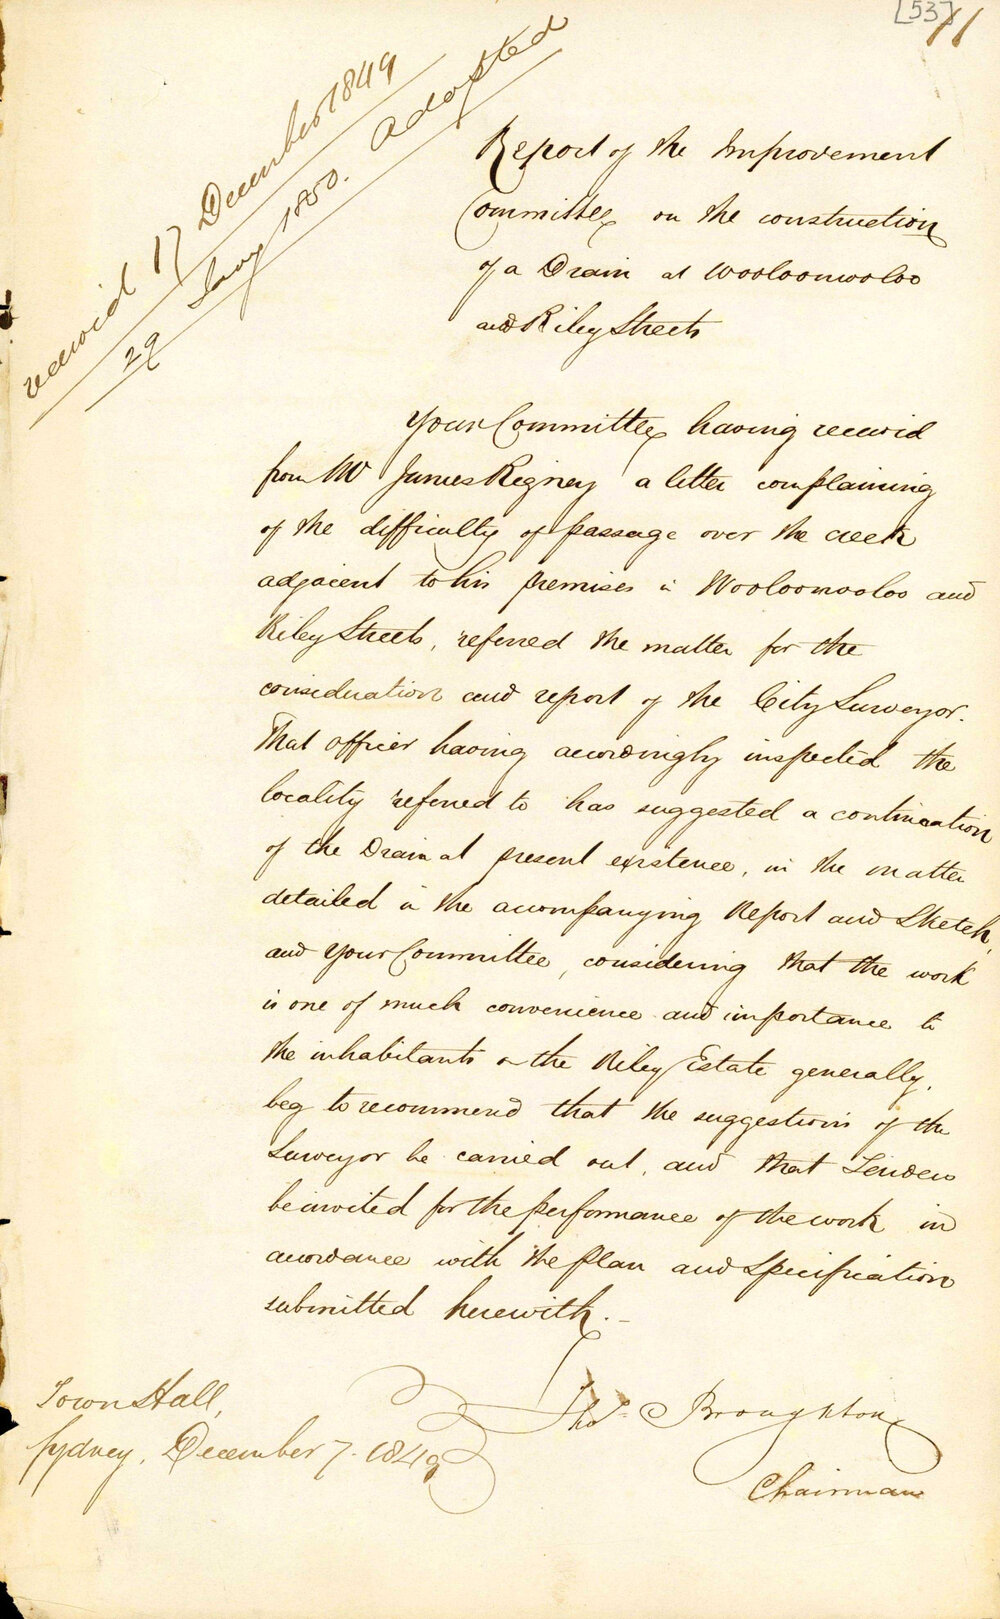 [53]
11
received 17 December 1849
29 Jany 1850. Adopted
Report of the Improvement
Committee on the construction
of a Drain at Wooloomooloo
and Riley Streets
Your Committee having received
from Mr James Rigney a letter complaining
of the difficulty of passage over the creek
adjacent to his premises in Wooloomooloo and
Riley Streets, referred the matter for the
consideration and report of the City Surveyor.
That officer having accordingly inspected the
locality referred to has suggested a continuation
of the Drain at present existence, in the matter
detailed in the accompanying Report and Sketch,
and Your Committee, considering that the work
is one of much convenience and importance to
the inhabitants on the Riley Estate generally,
beg to recommend that the suggestions of the
Surveyor be carried out, and that Tenders
be invited for the performance of the work in
accordance with the plan and Specification
submitted herewith._
Thos. Broughton
Chairman
Town Hall,
Sydney, December 7. 1849